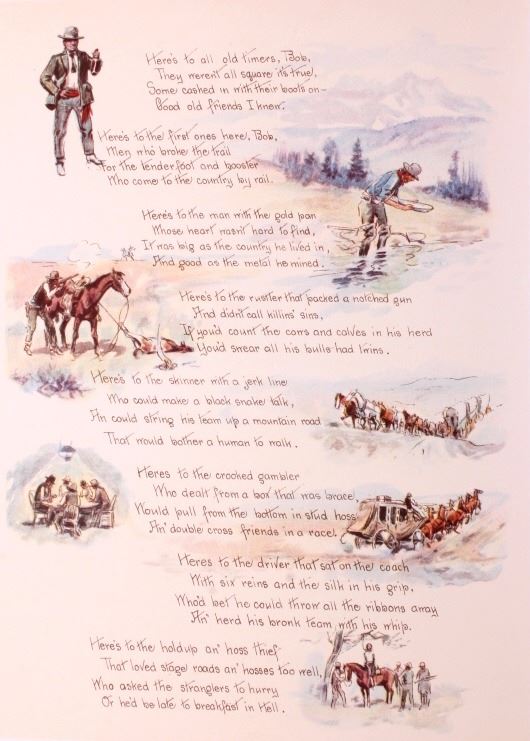 Here's to all old timers, Bob,
They weren't all square it's true,
Some cashed in with their boots on—
Good old friends I knew.
Here's to the first ones here, Bob,
Men who broke the trail
For the tenderfoot and booster
Who come to the country by rail.
Here's to the man with the gold pan
Whose heart wasn't hard to find,
It was big as the country he lived in,
And good as the metal he mined.
Here's to the rustler that packed a notched gun
And didn't call killin's sins,
If you'd count the cows and calves in his herd
You'd swear all his bulls had twins.
Here's to the skinner with a jerk line
Who could make a black snake talk,
An could string his team up a mountain road
That would bother a human to walk.
Here's to the crooked gambler
Who dealt from a box that was brace,
Would pull from the bottom in stud hoss
An' double cross friends in a race.
Here's to the driver that sat on the coach
With six reins and the silk in his grip,
Who'd bet he could throw all the ribbons away
An' herd his bronk team with his whip.
Here's to the holdup an' hoss thief
That loved stage roads an' hosses too well,
Who asked the stranglers to hurry
Or he'd be late to breakfast in Hell.